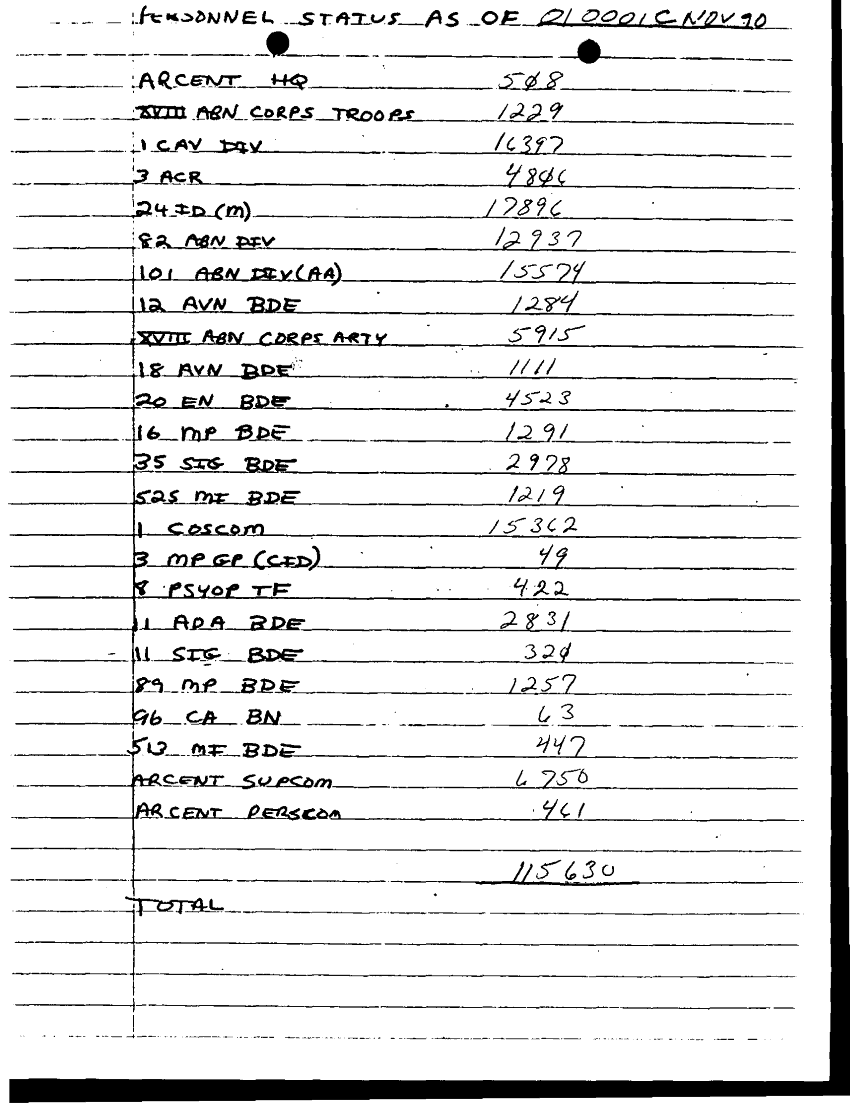 PERSONNEL STATUS AS OF 010001C NOV 90
ARCENT HQ 508
XVIII ABN CORPS TROOPS 1229
1 CAV DIV 16397
3 ACR 4806
24 ID (M) 17896
82 ABN DIV 12937
101 ABN DIV (AA) 15574
12 AVN BDE 1284
XVIII ABN CORPS ARTY 5915
18 AVN BDE 1111
20 EN BDE 4523
16 MP BDE 1291
35 SIG BDE 2978
525 MI BDE 1219
1 COSCOM 15362
3 MP GP (CID) 49
8 PSYOP TF 422
11 ADA BDE 2831
11 SIG BDE 320
89 MP BDE 1257
96 CA BN 63
513 MI BDE 447
ARCENT SUPCOM 6750
ARCENT PERSCOM 461
115630
TOTAL